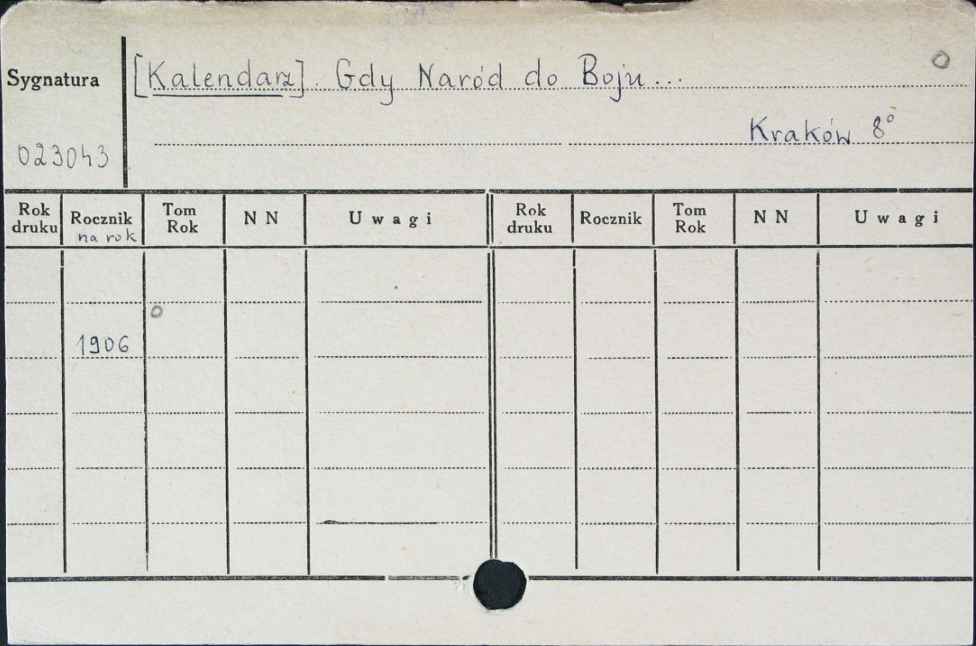 Sygnatura
[Kalendarz]. Gdy Naród do Boju...
Kraków 8°
023043
Rok druku Rocznik na rok Tom Rok N N U w a g i Rok druku Rocznik Tom Rok N N U w a g i
1906